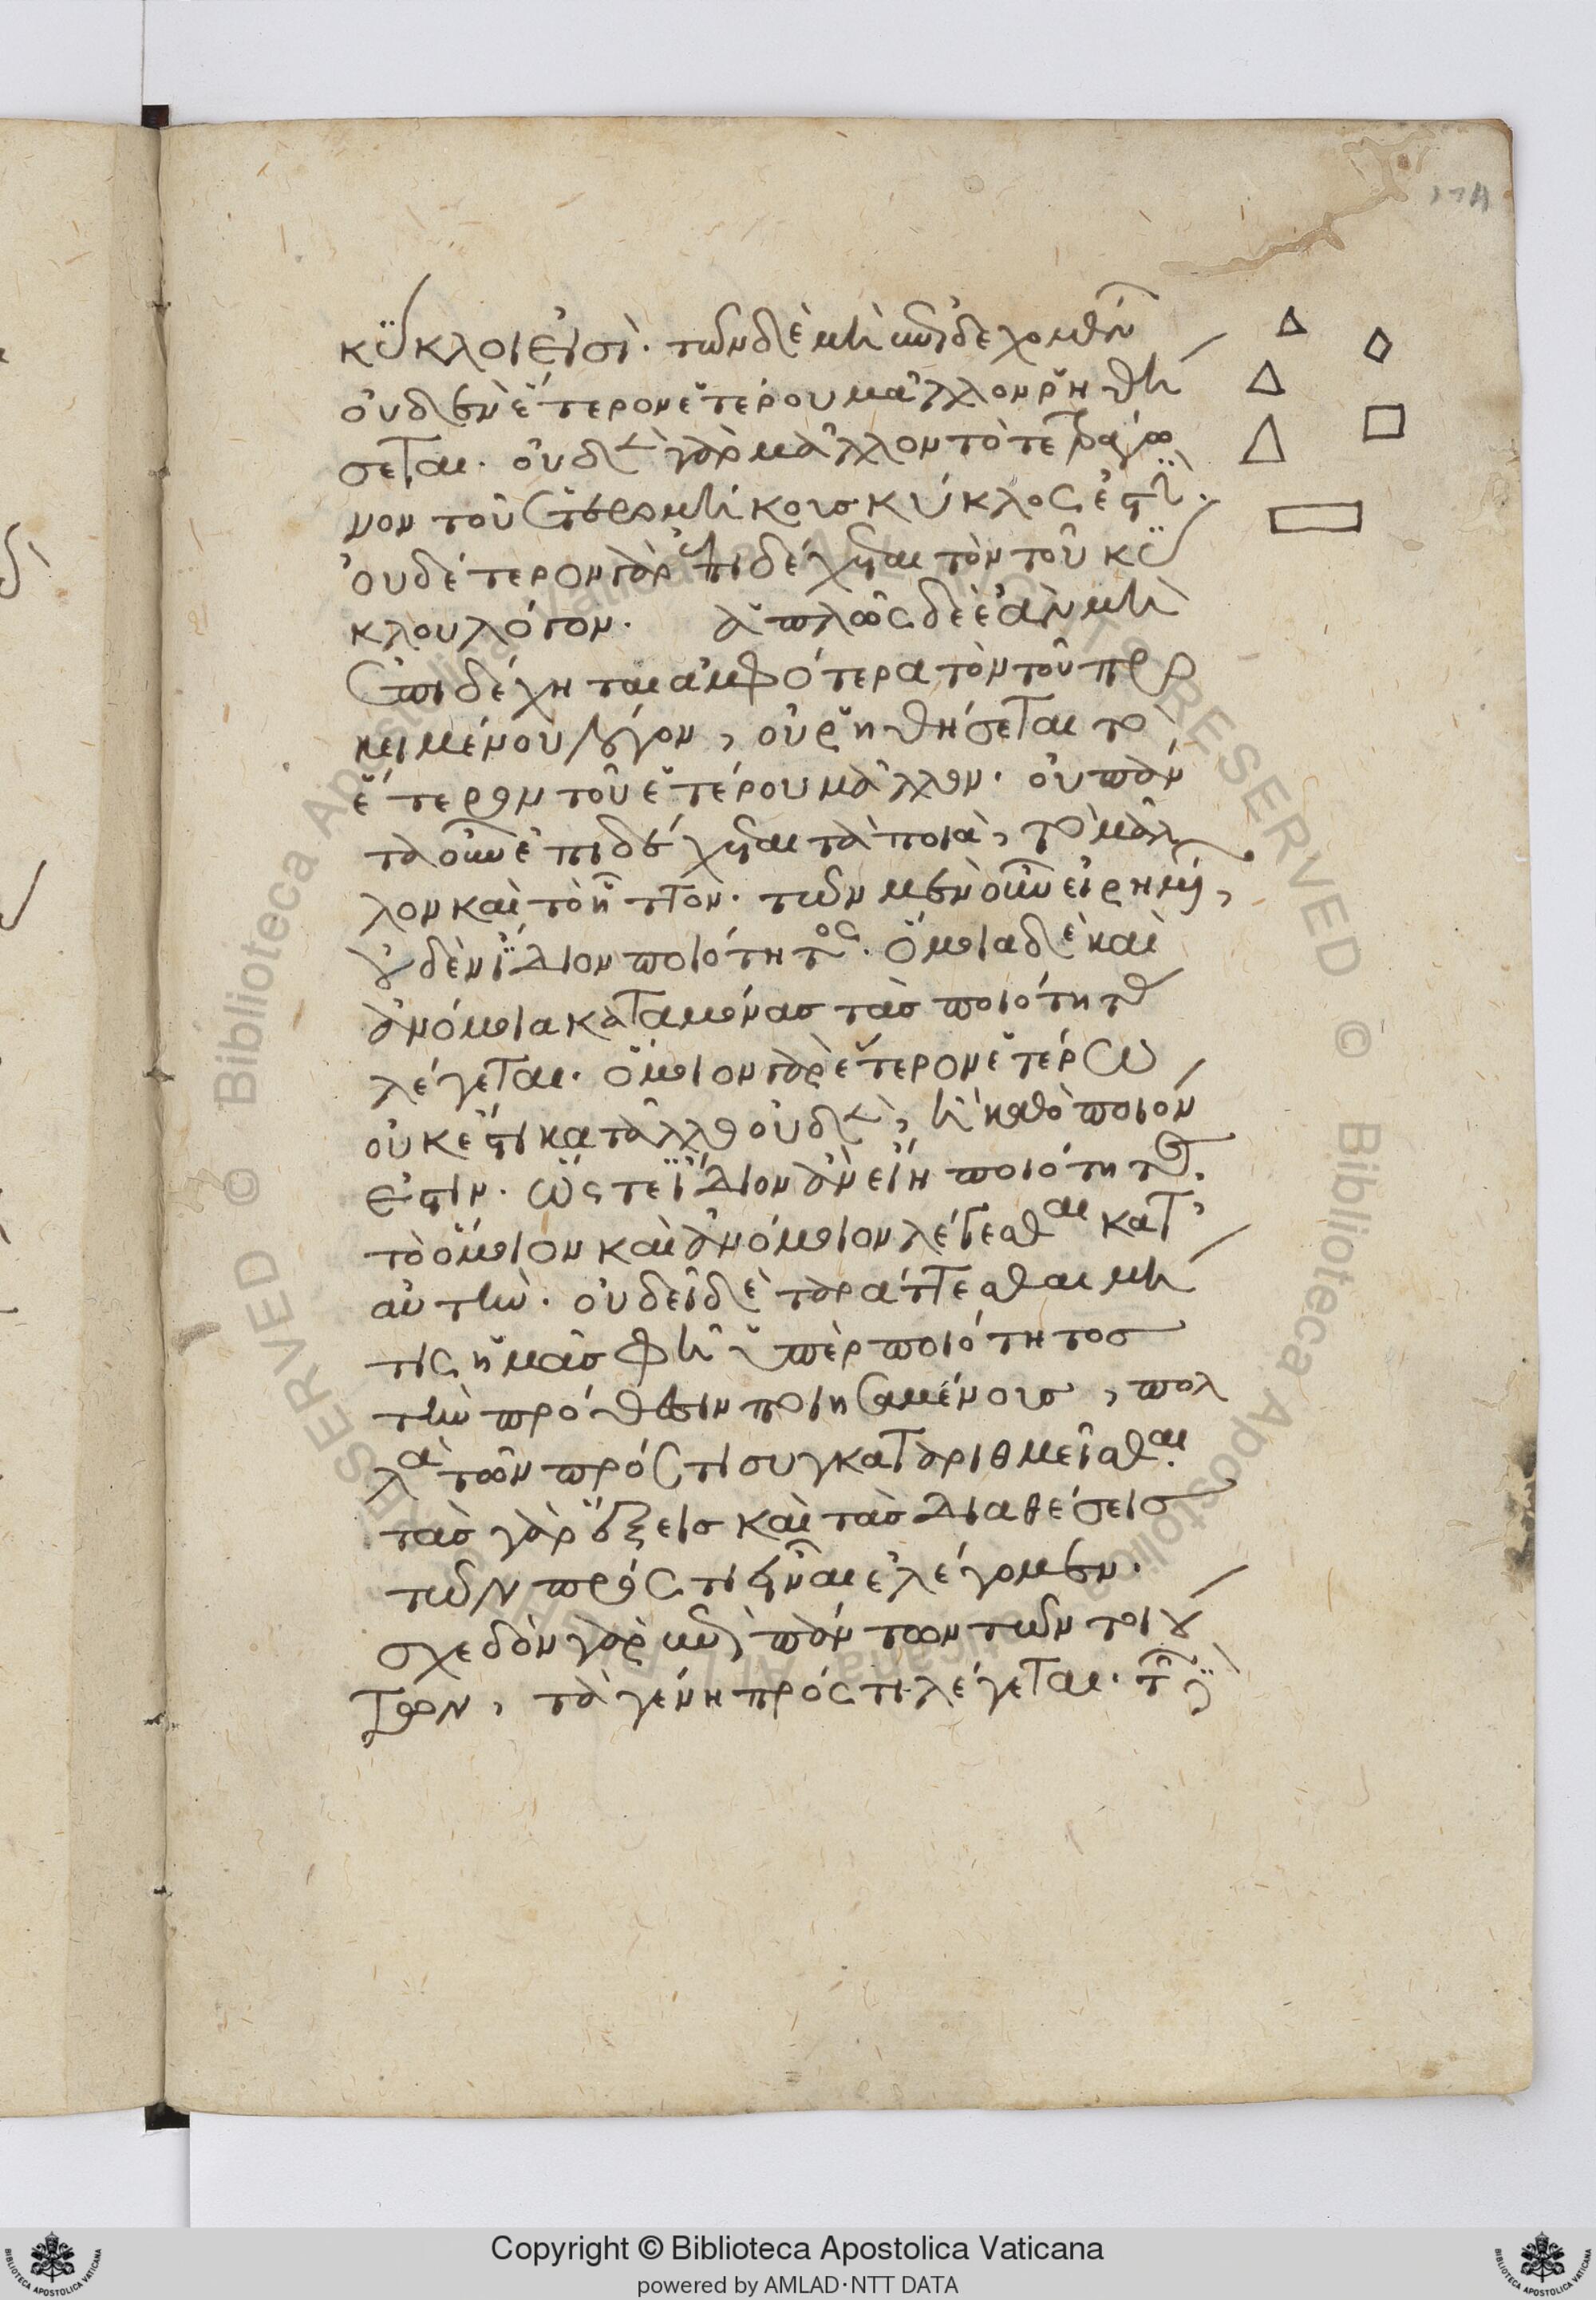 κύκλοι εἰσὶ· τῶν δὲ μὴ ἐπιδεχομένων
οὐδὲν ἕτερον ἑτέρου μᾶλλον ῥηθή
σεται· οὐδὲν γὰρ μᾶλλον τὸ τετράγω
νον τοῦ ἑτερομήκους κύκλος ἐστίν·
οὐδέτερον γὰρ ἐπιδέχεται τὸν τοῦ κύ
κλου λόγον· ἁπλῶς δὲ ἐὰν μὴ
ἐπιδέχηται ἀμφότερα τὸν τοῦ προ
κειμένου λόγον, οὐ ῥηθήσεται τὸ
ἕτερον τοῦ ἑτέρου μᾶλλον· οὐ πάν
τα οὖν ἐπιδέχεται τὰ ποιὰ, τὸ μᾶλ
λον καὶ τὸ ἧττον· τῶν μὲν οὖν εἰρημένων,
οὐδὲν ἴδιον ποιότητος· ὅμοια δὲ καὶ
ἀνόμοια κατὰ μόνας τὰς ποιότητας
λέγεται· ὅμοιον γὰρ ἕτερον ἑτέρω
οὐκ ἔστι κατ' ἄλλο οὐδὲν, ἢ καθὸ ποιόν
ἐστιν· ὥστε ἴδιον ἂν εἴη ποιότητος·
τὸ ὅμοιον καὶ ἀνόμοιον λέγεσθαι κατ'
αὐτήν· οὐ δεῖ δὲ ταράττεσθαι μή
τις ἡμᾶς φῆ ὑπὲρ ποιότητος
τὴν πρόθεσιν ποιησαμένους, πολ
λὰ τῶν πρός τι συγκαταριθμεῖσθαι·
τὰς γὰρ ἕξεις καὶ τὰς διαθέσεις
τῶν πρός τι εἶναι ἐλέγομεν·
σχεδὸν γὰρ ἐπὶ πάντων τῶν τοιού
των, τὰ γένη πρός τι λέγεται· τῶν